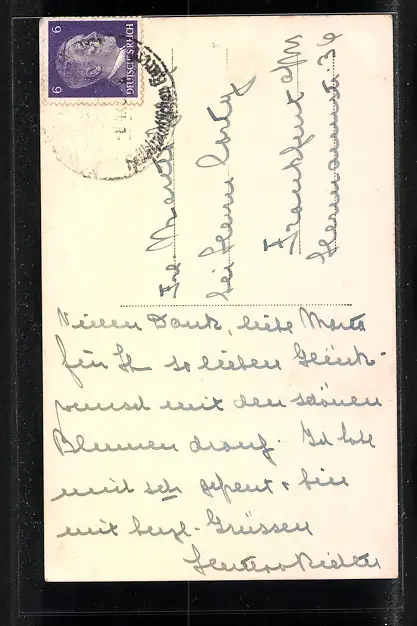 6 6
DEUTSCHES REICH
Frl.
bei Herrn
Frankfurt a/M
Hermannstr. 36
Vielen Dank, liebe
für Ih so lieben Glück-
wunsch mit den schönen
Blumen drauf. Ich habe
mich sehr gefreut & bin
mit herzl. Grüssen